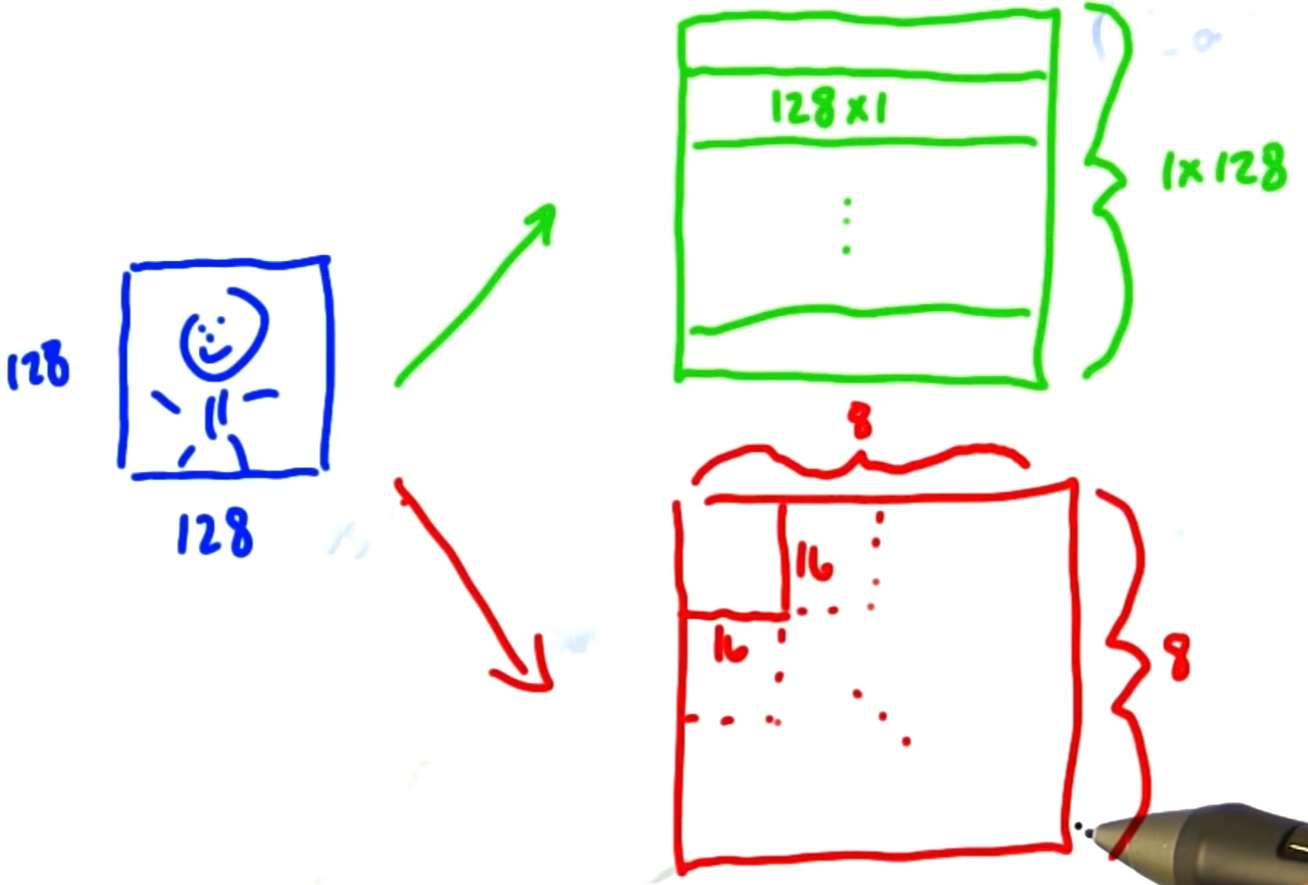 128
128
128x1
1x128
8
16
16
8